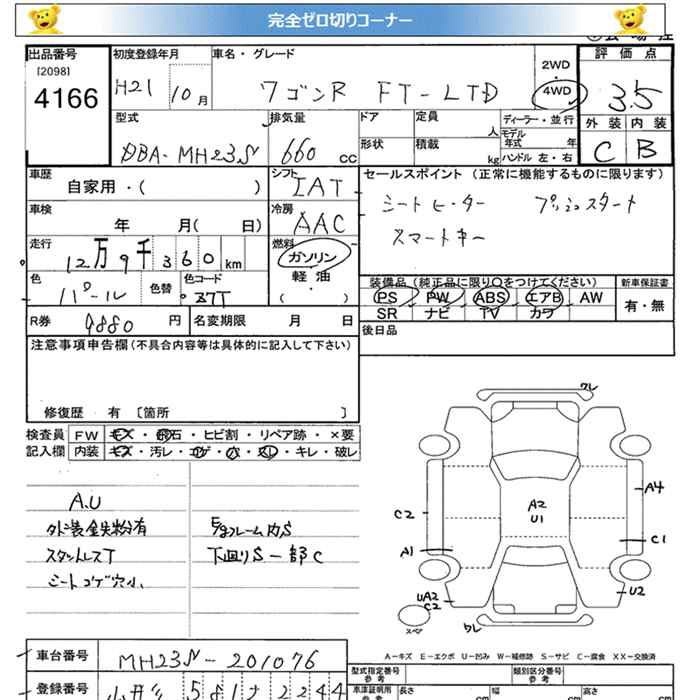 完全ゼロ切りコーナー
出品番号 初度登録年月 車名・グレード 評価点
[2098]
4166
H21 10月 ワゴンR FT-LTD 2WD 4WD 3.5
型式 排気量 ドア 定員 人 ディーラー・並行 外装 内装
DBA-MH23S 660cc 形状 積載 kg モデル年式 年 ハンドル 左・右 C B
車歴 シフト セールスポイント(正常に機能するものに限ります)
自家用・( ) IAT シートヒーター プッシュスタート
車検 冷房 スマートキー
年 月( 日) AAC
走行 燃料
12万9千360km ガソリン
色 色替 色コード 軽油 装備品(純正品に限り○をつけてください) 新車保証書
パール 37T ( ) PS PW ABS エアB AW 有・無
SR ナビ TV カワ
R券 9880円 名変期限 月 日 後日品
注意事項申告欄(不具合内容等は具体的に記入して下さい)
修復歴 有 〔箇所 〕
検査員 FW キズ・飛石・ヒビ割・リペア跡・×要
記入欄 内装 キズ・汚レ・コゲ・穴・スレ・キレ・破レ
A.U
外装鉄粉有 E/gフレーム内S
スタットレスT 下廻りS一部C
シートコゲ穴小
ワレ
A4
C2 A2
U1
C1
A1
UA2
C2
U2
スペア ワレ
A-キズ E-エクボ U-凹み W-補修跡 S-サビ C-腐食 XX-交換済
車台番号 MH23S-201076
型式指定番号 参考 類別区分番号 参考
登録番号 581 2244
車庫証明用 参考 長さ cm 幅 cm 高さ cm